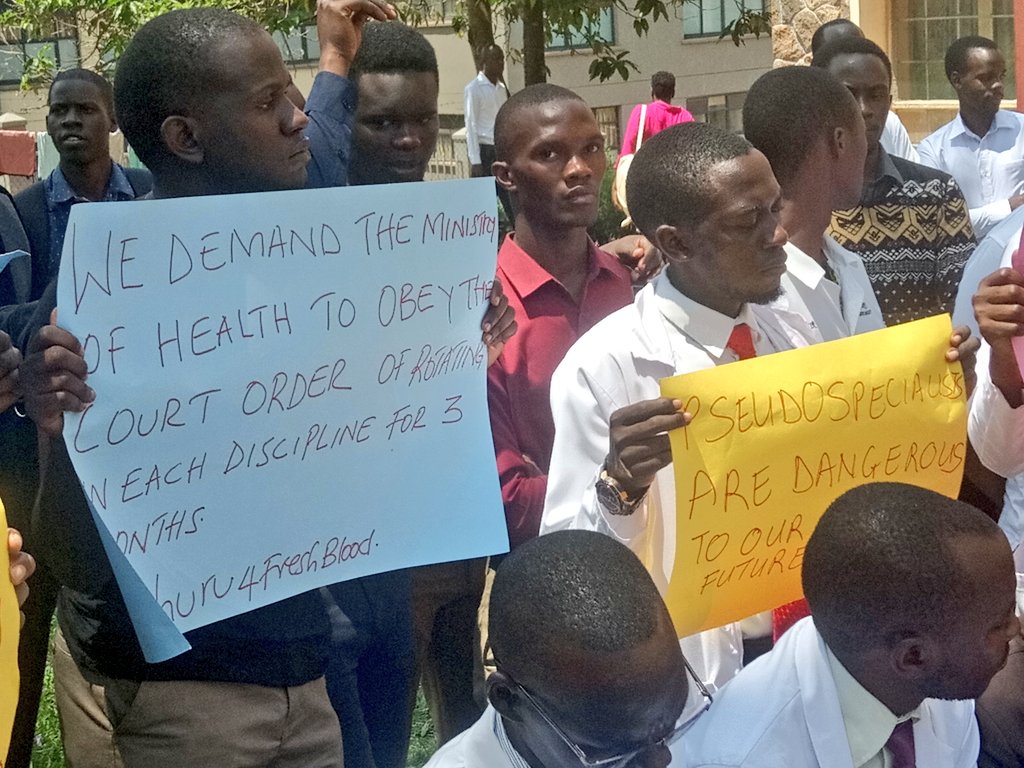 WE DEMAND THE MINISTRY
OF HEALTH TO OBEY THE
COURT ORDER OF ROTATING
IN EACH DISCIPLINE FOR 3
ONTHS.
huru4FreshBlood.
PSEUDOSPECIALISTS
ARE DANGEROUS
TO OUR
FUTURE